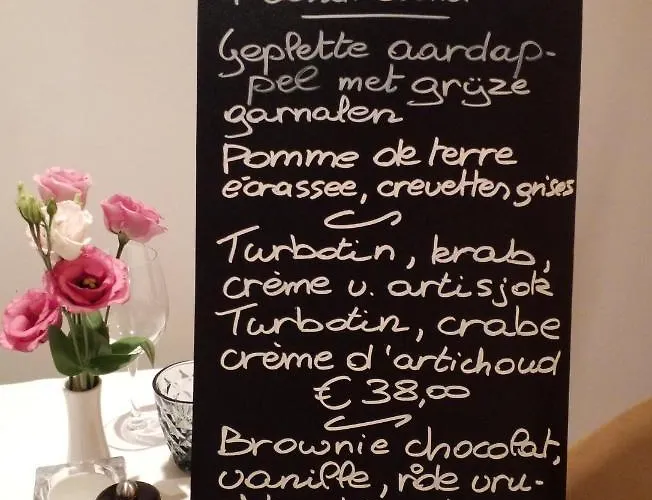 Geplette aardap-
pel met grijze
garnalen
Pomme de terre
écrassee, crevettes grises
Turbotin, krab,
crème v. artisjok
Turbotin, crabe
crème d'artichoud
€ 38,00
Brownie chocolat,
vanille, rode vru-